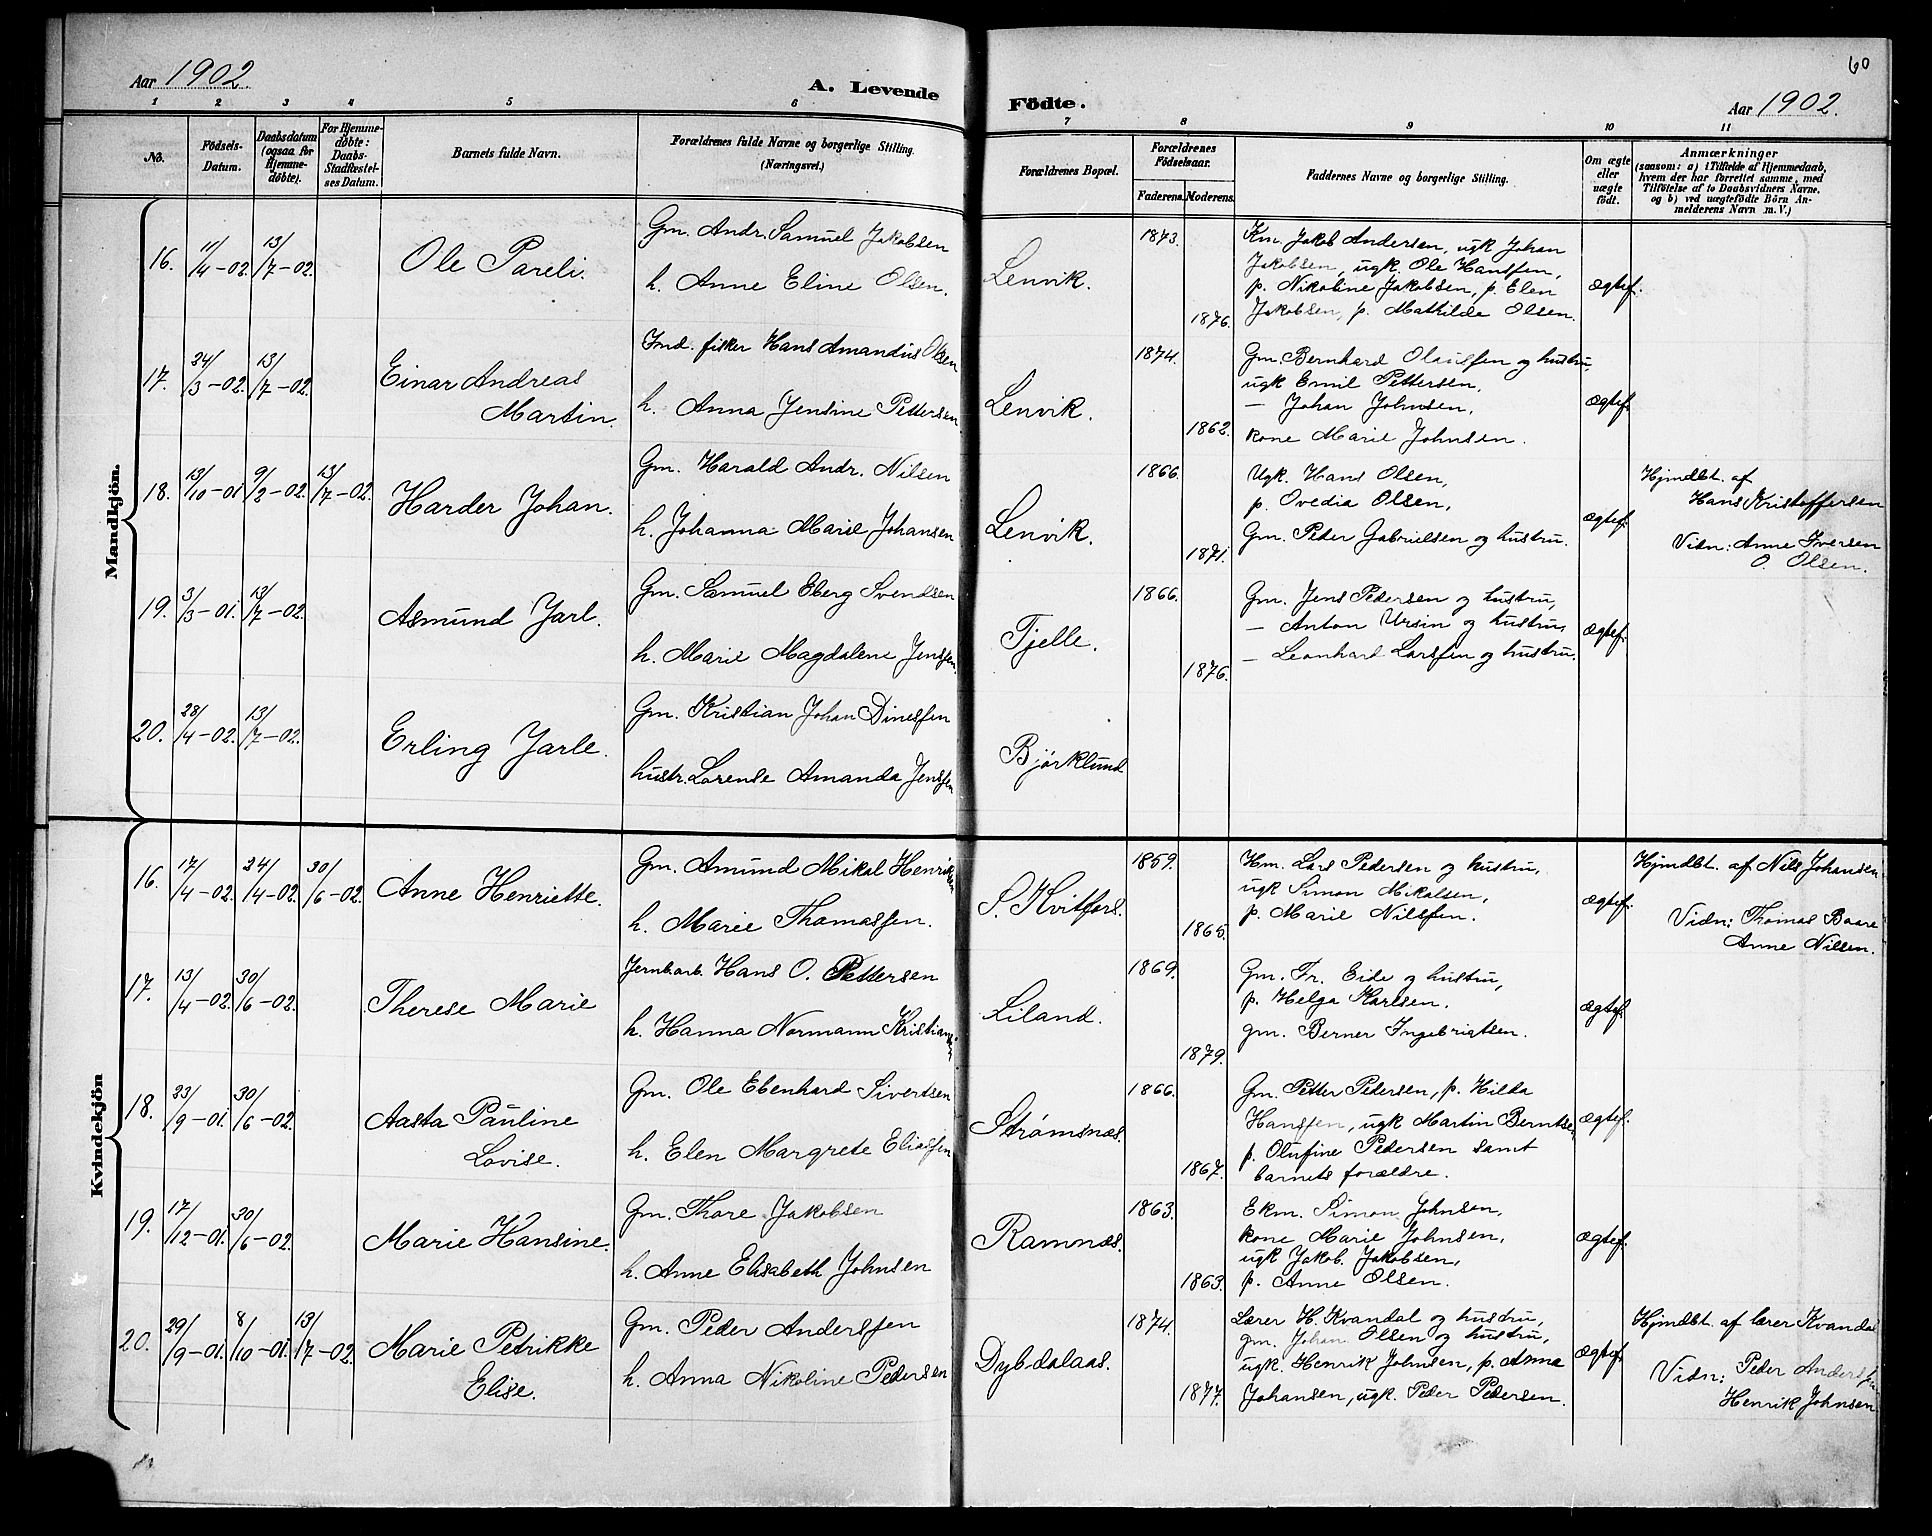 60
Aar 1902. A. Levende Födte. Aar 1902.
1 2 3 4 5 6 7 8 9 10 11
No.
Födsels-
Datum.
Daabsdatum
(ogsaa for
Hjemme-
döbte).
For Hjemme-
döbte:
Daabs-
Stadfæstel-
ses Datum.
Barnets fulde Navn.
Forældrenes fulde Navne og borgerlige Stilling.
(Næringsvei.)
Forældrenes Bopæl.
Forældrenes
Födselsaar.
Faderens. Moderens.
Faddernes Navne og borgerlige Stilling.
Om ægte
eller
uægte
födt.
Anmærkninger
(saasom: a) i Tilfælde af Hjemmedaab,
hvem der har forrettet samme, med
Tilföielse af to Daabsvidners Navne.
og b) ved uægtefödte Börn An-
melderens Navn m. V.)
Mandkjön.
16. 11/4-02. 13/7-02.
Ole Pareli.
Gm. Andr. Samuel Jakobsen
h. Anne Eline Olsen.
Lenvik.
1873.
1876.
Km. Jakob Andersen, ugk Johan
Jakobsen, ugk. Ole Hanssen,
p. Nikoline Jakobsen, p. Elen
Jakobsen, p. Mathilde Olsen.
Ægtef.
17. 24/3-02. 13/7-02.
Einar Andreas
Martin.
Ind. fisker Hans Amandus Olsen
h. Anna Jensine Pettersen.
Lenvik.
1874.
1862.
Gm. Bernhard Olaussen og hustru,
ugk Emil Pettersen,
— Johan Johnsen,
kone Marie Johnsen.
Ægtef.
18. 13/10-01 9/2-02. 13/7-02.
Harder Johan.
Gm. Harald Andr. Nilsen
h. Johanna Marie Johansen
Lenvik.
1866.
1871.
Ugk. Hans Olsen,
p. Ovedia Olsen,
Gm. Peder Gabrielsen og hustru.
Ægtef.
Hjmdbt. af
Hans Kristoffersen
Vidn: Anne Iversen
O. Olsen.
19. 3/3-01. 13/7-02.
Asmund Jarl.
Gm. Samuel Eberg Svendsen
h. Marie Magdalene Jenssen.
Tjelle.
1866.
1876.
Gm. Jens Pedersen og hustru,
— Anton Ursin og hustru,
— Leonhard Larssen og hustru.
Ægtef.
20. 28/4-02. 13/7-02.
Erling Jarle.
Gm. Kristian Johan Dinessen
hustr. Lorense Amanda Jenssen
Bjørklund
Kvindekjön
16. 17/4-02. 24/4-02. 30/6-02.
Anne Henriette.
Gm. Amund Mikal Henriksen
h. Marie Thomassen.
S. Kvitfors.
1859.
1865.
Hm. Lars Pedersen og hustru,
ugk Simon Mikalsen,
p. Marie Nilssen.
Ægtef.
Hjmdbt. af Nils Johansen
Vidn: Thomas Baare
Anne Nilsen.
17. 13/4-02. 30/6-02.
Therese Marie
Jernbarb. Hans O. Pettersen
h. Hanna Normann Kristiansen
Liland.
1869.
1879.
Gm. Fr. Eide og hustru,
p. Helga Karlsen.
gm. Berner Ingebrigtsen.
Ægtef.
18. 23/9-01. 30/6-02.
Aasta Pauline
Lovise.
Gm. Ole Ebenhard Sivertsen
h. Elen Margrete Eliassen
Strømsnæs.
1866.
1867.
Gm. Petter Pedersen, p. Hilda
Hanssen, ugk Martin Berntsen,
p. Olufine Pedersen samt
barnets forældre.
Ægtef.
19. 17/12-01. 30/6-02.
Marie Hansine.
Gm. Thore Jakobsen
h. Anne Elisabeth Johnsen
Ramnæs.
1863.
1863.
Ekm. Simon Johnsen,
kone Marie Johnsen,
ugk Jakob Jakobsen,
p. Anne Olsen.
Ægtef.
20. 29/9-01. 8/10-01. 13/7-02.
Marie Petrikke
Elise.
Gm. Peder Anderssen
h. Anna Nikoline Pedersen
Dybdalaas.
1874.
1877.
Lærer H. Kvandal og hustru,
gm. Johan Olsen og hustru,
ugk. Henrik Johnsen, p. Anna
Johansen, ugk. Peder Pedersen.
Ægtef.
Hjmdbt. af lærer Kvandal
Vidn: Peder Anderssen
Henrik Johnsen